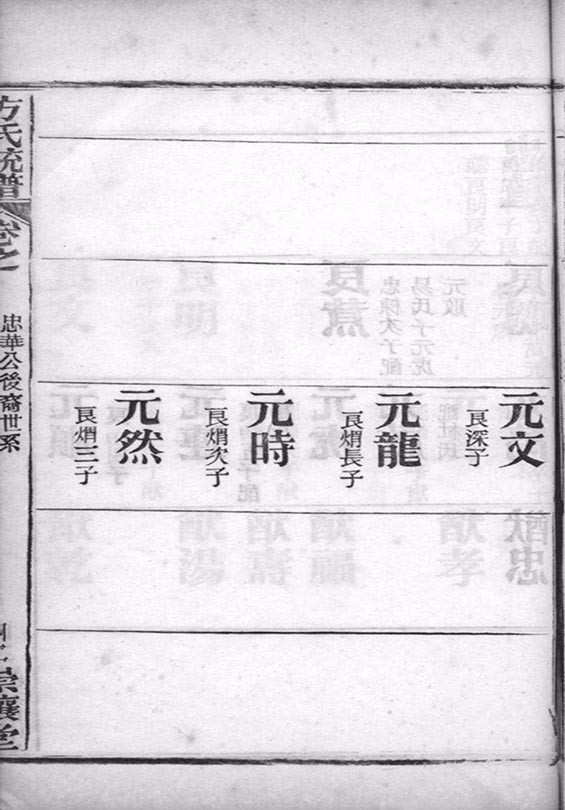 元文
良深子
元龍
良焆長子
元時
良焆次子
元然
良焆三子
方氏統譜
卷之
忠華公後裔世系
崇讓堂